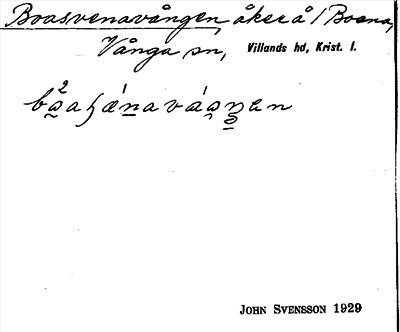 Boasvenavången, åker å /Boana,
Vånga sn, Villands hd, Krist. l.
JOHN SVENSSON 1929